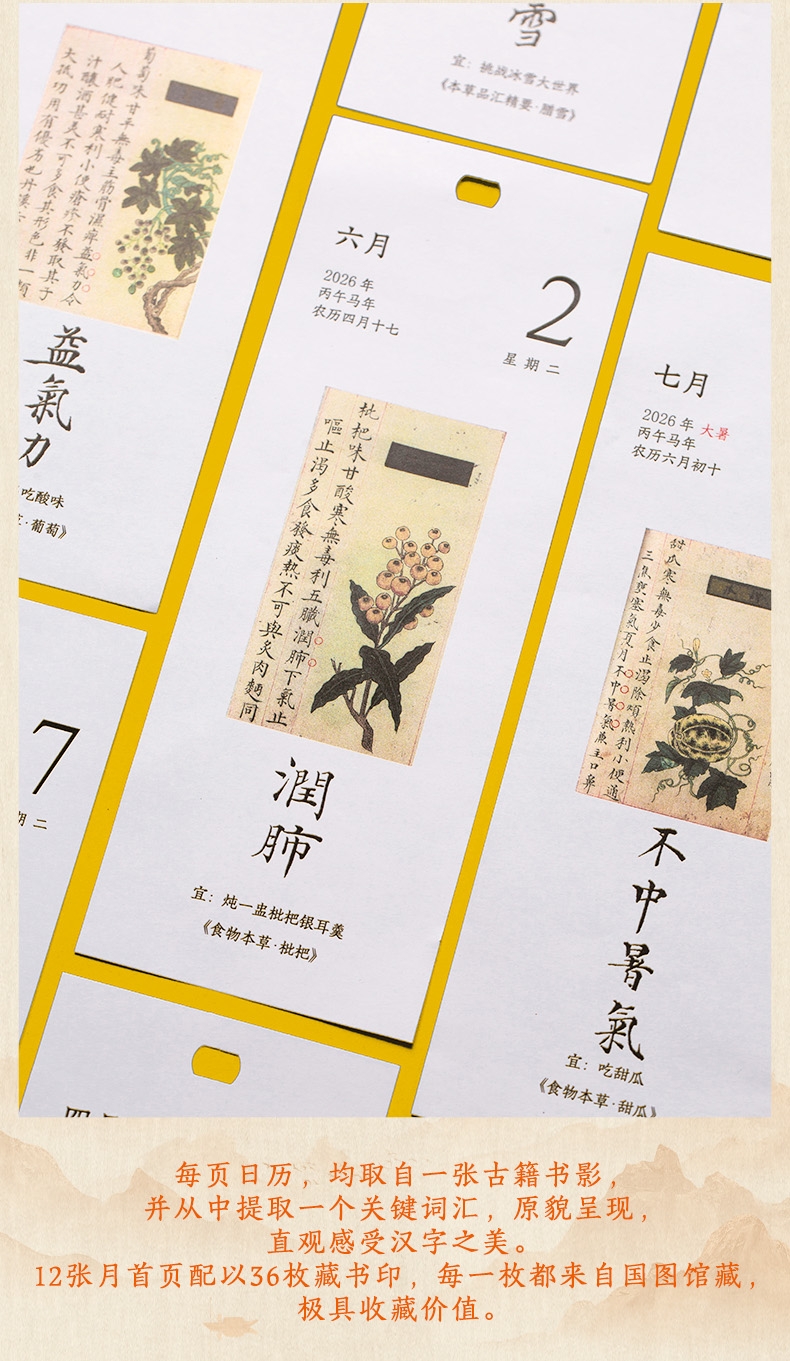 雪
宜：挑战冰雪大世界
《本草品汇精要·腊雪》
葡萄味甘平無毒主筋骨濕痺益氣力令
人肥健耐寒利小便瘡疹不發取其子
汁釀酒甚美不可多食其形色非一類
大抵功用有優劣也丹溪云
益氣力
吃酸味
·葡萄》
六月
2026 年
丙午马年
农历四月十七
2
星期二
枇杷味甘酸寒無毒利五臟潤肺下氣止
嘔止渴多食發痰熱不可與炙肉麵同
潤肺
宜：炖一盅枇杷银耳羹
《食物本草·枇杷》
七月
2026 年 大暑
丙午马年
农历六月初十
甜瓜寒無毒少食止渴除煩熱利小便通
三焦壅塞氣夏月不中暑氣兼主口鼻
不中暑氣
宜：吃甜瓜
《食物本草·甜瓜》
7
期二
每页日历，均取自一张古籍书影，
并从中提取一个关键词汇，原貌呈现，
直观感受汉字之美。
12张月首页配以36枚藏书印，每一枚都来自国图馆藏，
极具收藏价值。